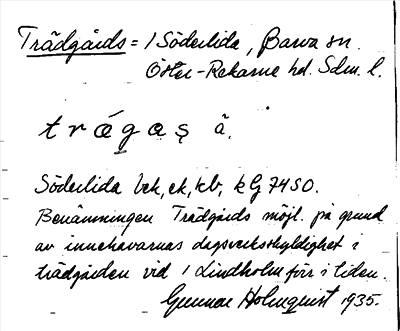 Trädgårds = / Söderlida, Barva sn.
Öster-Rekarne hd. Sdm. l.
trägaş å.
Söderlida bek, ek, kb, kG 7450.
Benämningen Trädgårds möjl. på grund
av innehavarnas dagsverksskyldighet i
trädgården vid / Lindholm förr i tiden.
Gunnar Holmquist 1935.